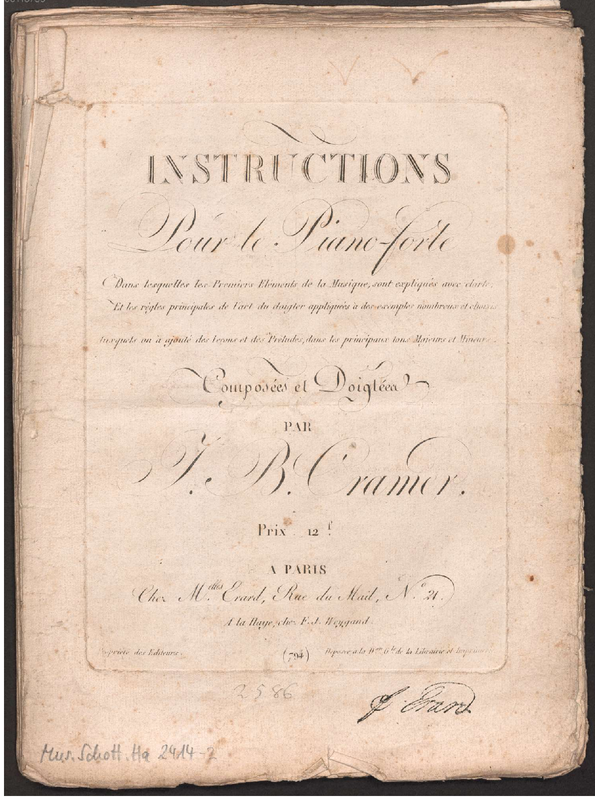 INSTRUCTIONS
Pour le Piano-forte
Dans lesquelles les Premiers Elements de la Musique, sont expliqués avec clarté,
Et les règles principales de l'art du doigter appliquées à des exemples nombreux et choisis
auxquels on a ajouté des leçons et des Préludes, dans les principaux tons Majeurs et Mineurs.
Composées et Doigtées
PAR
J. B. Cramer.
Prix 12 f.
A PARIS
Chez M.elles Erard, Rue du Mail, N.° 21.
A la Haye, chez F. J. Weygand.
Propriété des Editeurs. (794) Déposé à la D.on G.le de la Librairie et Imprimerie
2586
Erard
Mus. Schott. Ha 2414-2